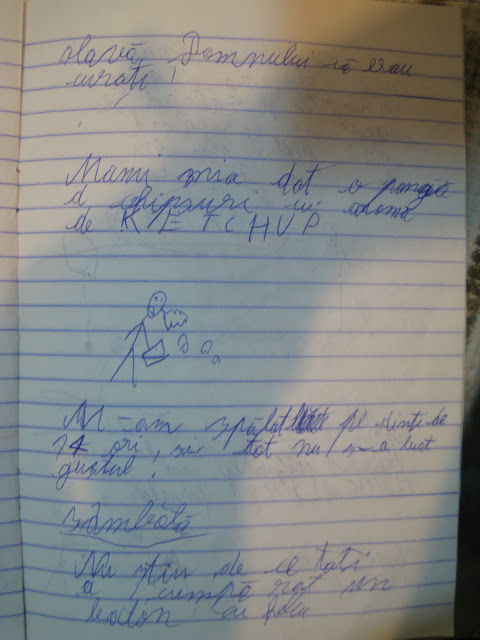 slavă Domnului că erau
curați !
Mami mia dat o pungă
d chipsuri cu aromă
de KETCHUP
M-am spălat pe dinți de
74 ori, și tot nu s-a luat
gustul.
sâmbătă
Nu știu de ce tati
a cumpărat un
cu